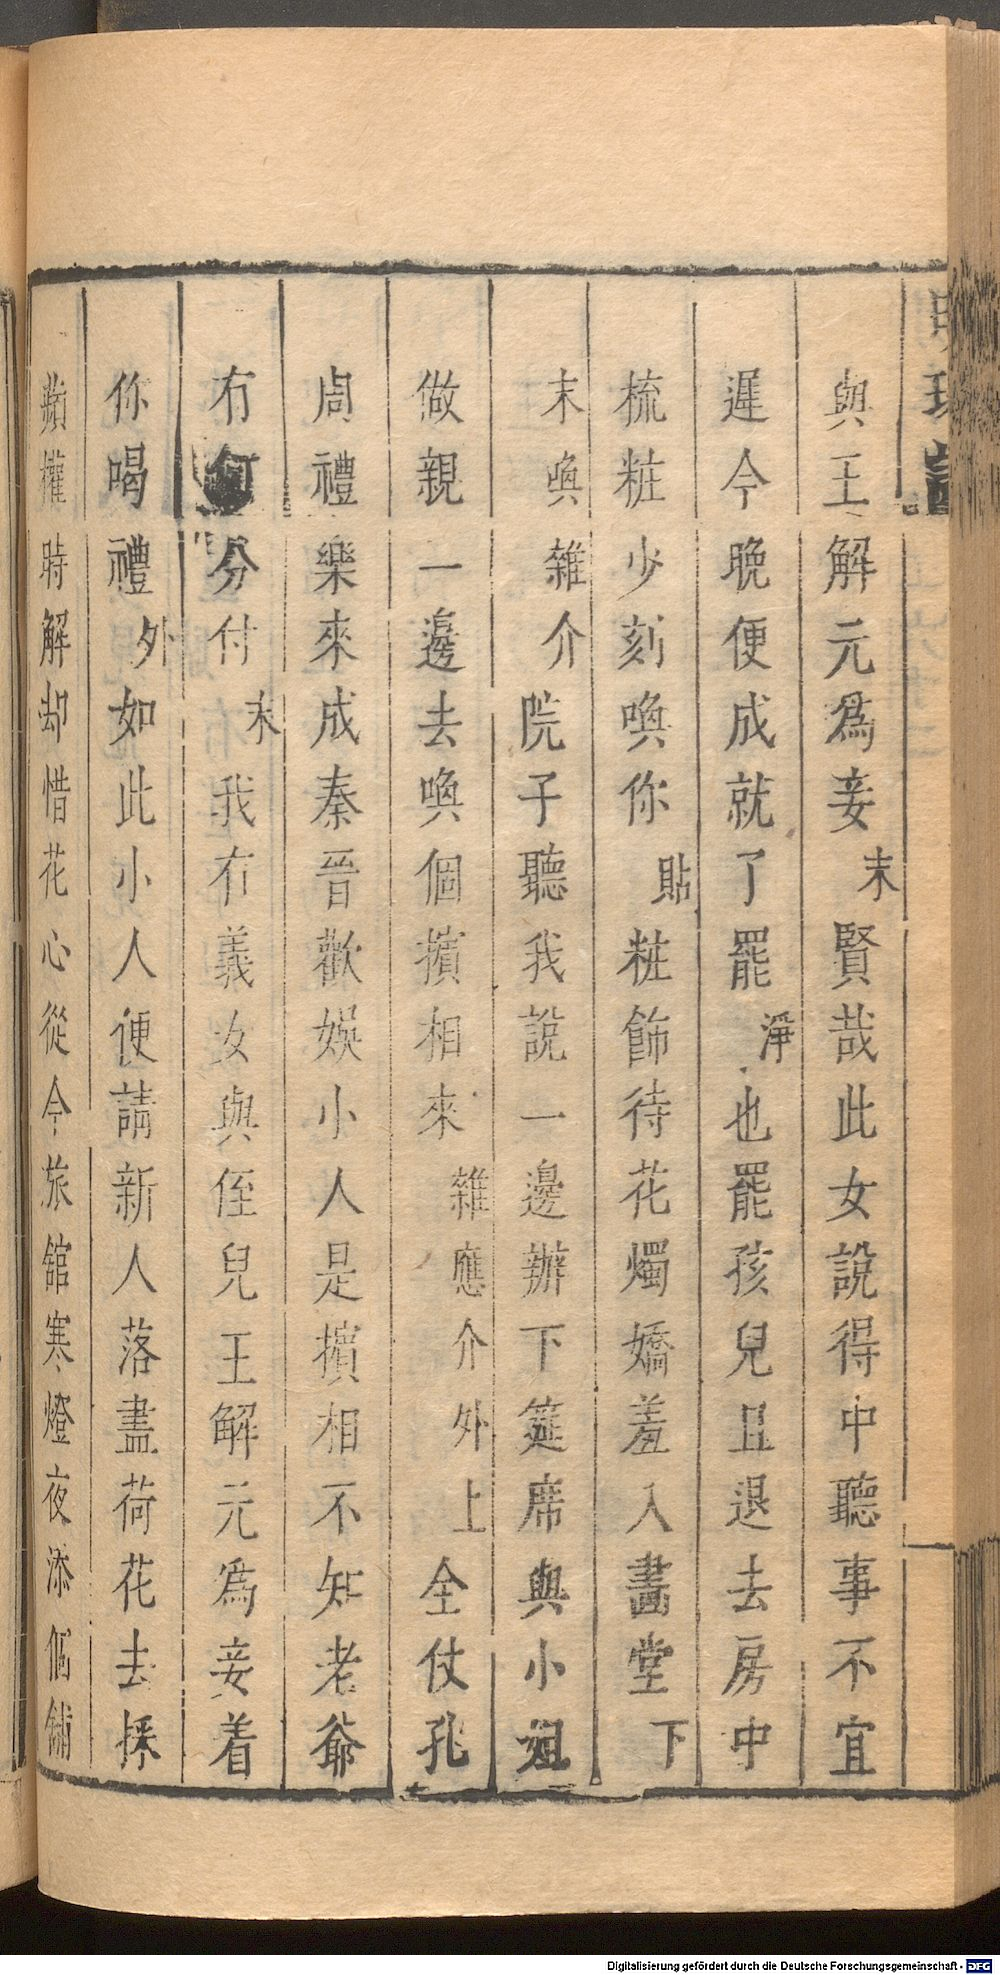 與王解元爲妾末賢哉此女說得中聽事不宜
遲今晚便成就了罷淨也罷孩兒且退去房中
梳粧少刻喚你貼粧飾待花燭嬌羞入畵堂下
末喚雜介院子聽我說一邊辦下筵席與小姐
做親一邊去喚個擯相來雜應介外上全仗孔
周禮樂來成秦晉歡娛小人是擯相不知老爺
有何分付末我有義女與侄兒王解元爲妾着
你喝禮外如此小人便請新人落盡荷花去採
蘋權時解却惜花心從今旅舘寒燈夜添個鋪
Digitalisierung gefördert durch die Deutsche Forschungsgemeinschaft - DFG